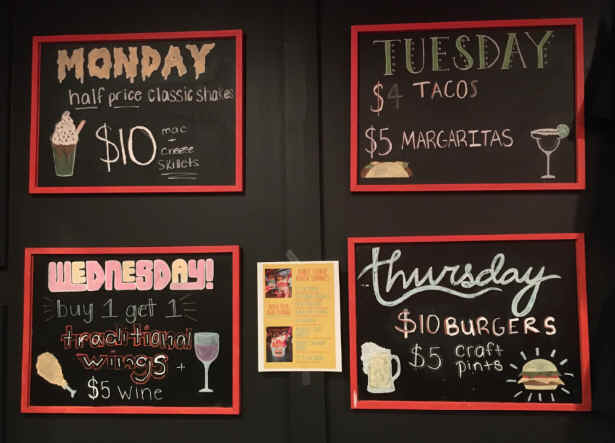 MONDAY
half price classic shakes
$10 mac
+
cheese
skillets
TUESDAY
$4 TACOS
$5 MARGARITAS
WEDNESDAY!
buy 1 get 1
traditional
wings +
$5 WINE
thursday
$10 BURGERS
$5 craft
pints